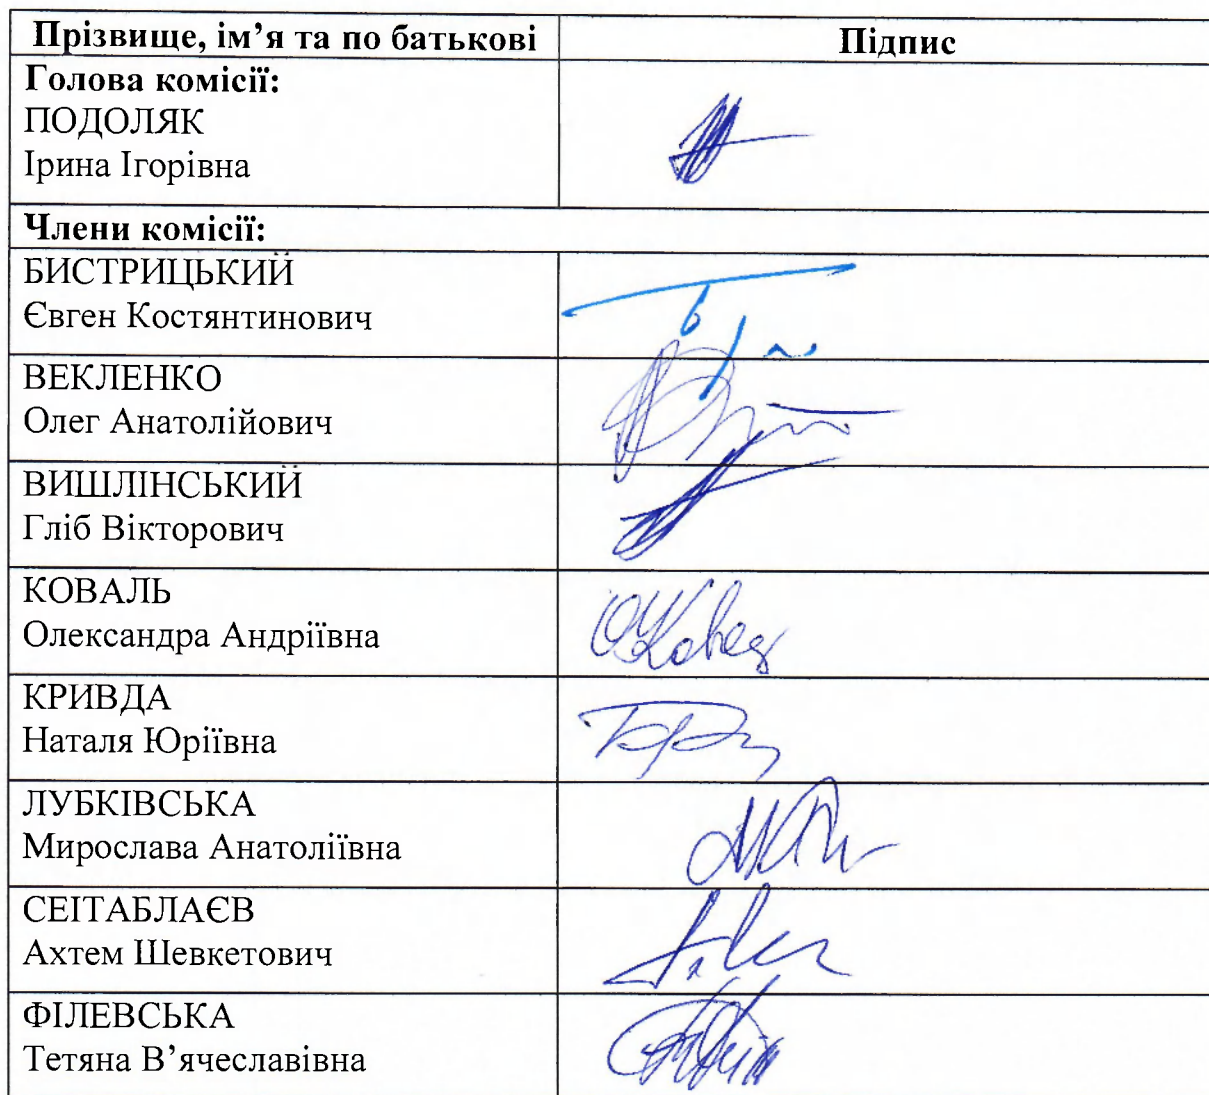 Прізвище, ім’я та по батькові Підпис
Голова комісії:
ПОДОЛЯК
Ірина Ігорівна
Члени комісії:
БИСТРИЦЬКИЙ
Євген Костянтинович
ВЕКЛЕНКО
Олег Анатолійович
ВИШЛІНСЬКИЙ
Гліб Вікторович
КОВАЛЬ
Олександра Андріївна
КРИВДА
Наталя Юріївна
ЛУБКІВСЬКА
Мирослава Анатоліївна
СЕІТАБЛАЄВ
Ахтем Шевкетович
ФІЛЕВСЬКА
Тетяна В’ячеславівна